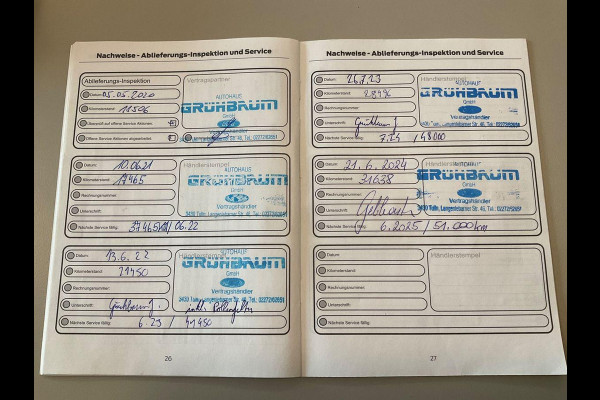 Nachweise - Ablieferungs-Inspektion und Service
Ablieferungs-Inspektion
Vertragspartner
Datum: 05.05.2020
Kilometerstand: 11506
AUTOHAUS
GRÜHBAUM
GmbH
Vertragshändler
Datum: 10.06.21
Händlerstempel
Kilometerstand: 17465
Rechnungsnummer:
Unterschrift:
AUTOHAUS
GRÜHBAUM
GmbH
Vertragshändler
3430 Tulln, Langenlebarner Str. 46, Tel.: 02272/62651
Nächste Service fällig: 37465km / 06.22
Datum: 13.6.22
Händlerstempel
Kilometerstand: 21450
Rechnungsnummer:
Unterschrift:
AUTOHAUS
GRÜHBAUM
GmbH
Vertragshändler
3430 Tulln, Langenlebarner Str. 46, Tel.: 02272/62651
Nächste Service fällig: 6.23 / 41450
26
Nachweise - Ablieferungs-Inspektion und Service
Datum: 26.7.23
Händlerstempel
Kilometerstand: 28996
Rechnungsnummer:
Unterschrift:
AUTOHAUS
GRÜHBAUM
GmbH
Vertragshändler
Nächste Service fällig: 7.24 / 48000
Datum: 21.6.2024
Händlerstempel
Kilometerstand: 31638
Rechnungsnummer:
Unterschrift:
GRÜHBAUM
GmbH
Vertragshändler
3430 Tulln, Langenlebarner Str. 46, Tel.: 02272/62651
Nächste Service fällig: 6.2025 / 51.000km
Datum:
Händlerstempel
Kilometerstand:
Rechnungsnummer:
Unterschrift:
Nächste Service fällig:
27